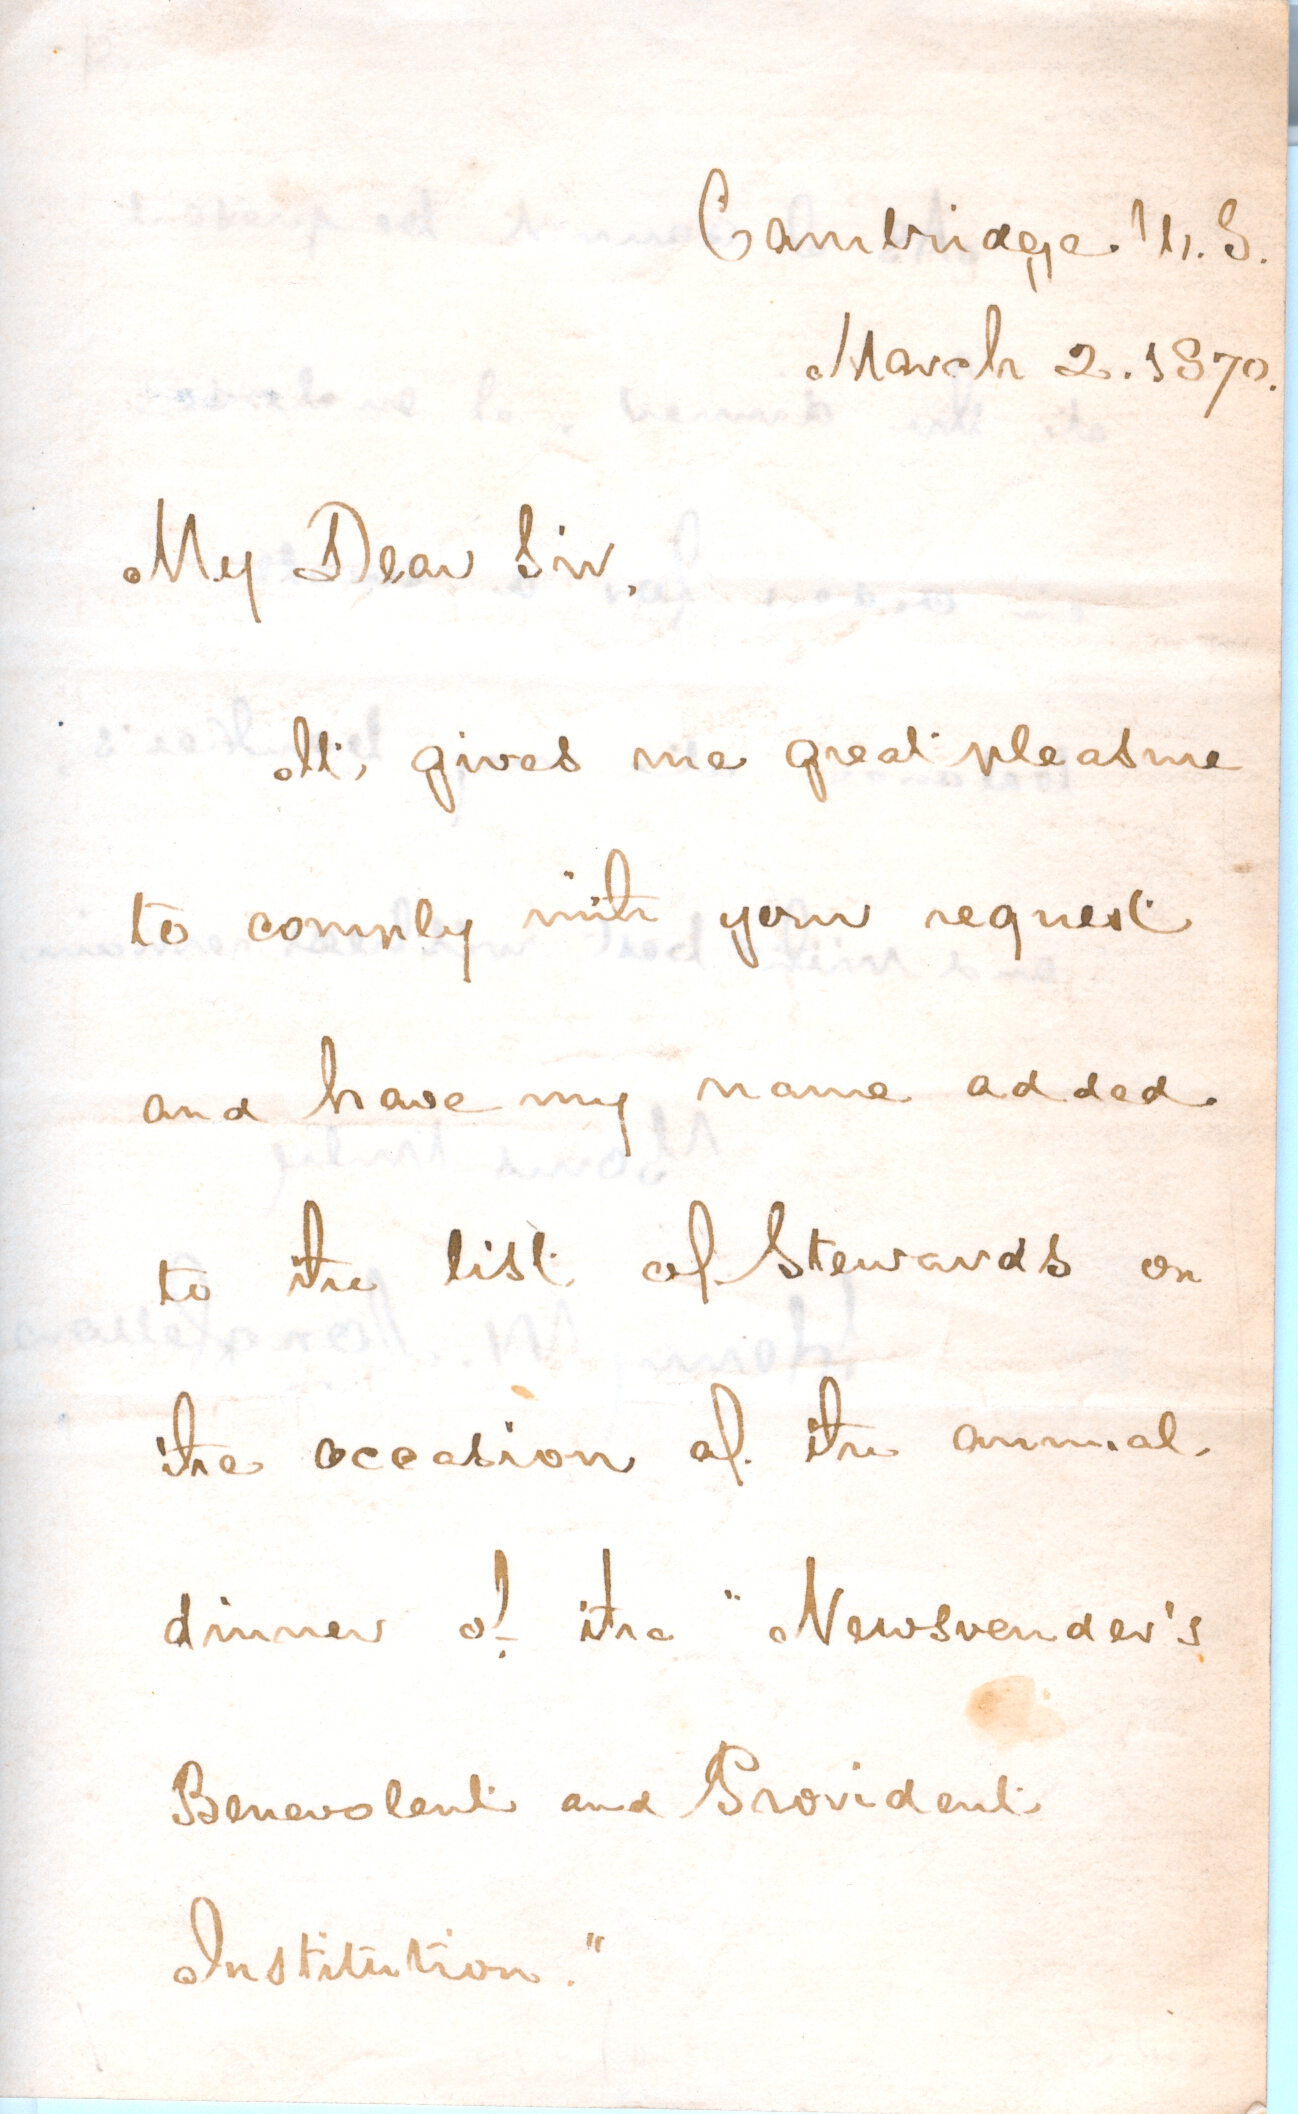 Cambridge. U. S.
March 2. 1870.
My Dear Sir,
It gives me great pleasure
to comply with your request
and have my name added
to the list of Stewards on
the occasion of the annual
dinner of the "Newsvender's
Benevolent and Provident
Institution."